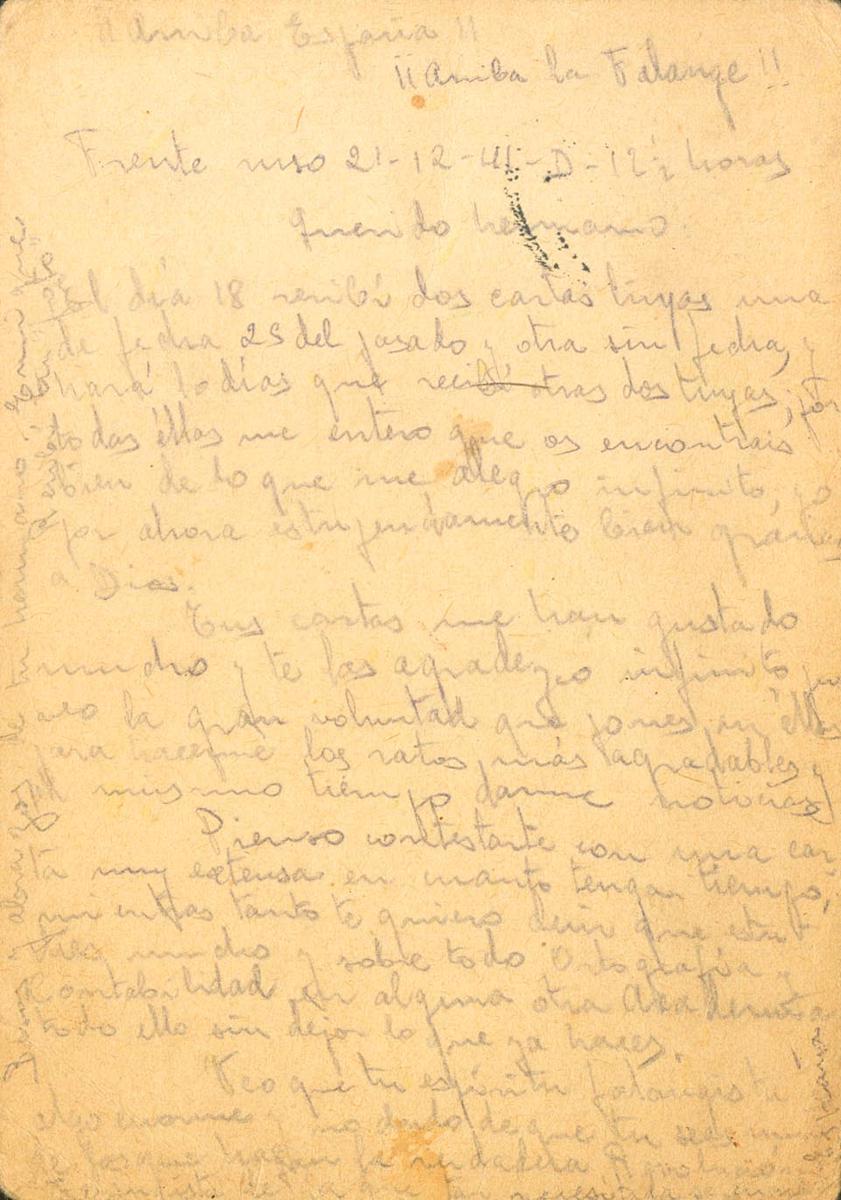 ¡¡Arriba España!!
¡¡Arriba la Falange!!
Frente ruso 21-12-41-D-12½ horas
Querido hermano:
El día 18 recibí dos cartas tuyas una
de fecha 25 del pasado y otra sin fecha, y
hará 10 días que recibí otras dos tuyas; por
todas éllas me entero que os encontrais
bien de lo que me alegro infinito, yo
por ahora estupendamente bien grácias
a Dios.
Tus cartas me han gustado
mucho y te las agradezco infinito, pues
veo la gran voluntad que pones en éllas
para hacerme los ratos más agradables y
al mismo tiempo darme noticias.
Pienso contestarte con una car
ta muy extensa en cuanto tenga tiempo,
mientras tanto te quiero decir que estu
dies mucho y sobre todo Ortografía y
Contabilidad en alguna otra Academia
todo ello sin dejar lo que ya haces.
Veo que tu espíritu falangista
algo enorme y no dudo de que tu seas uno
de los que hagan la verdadera Revolución
de la que tan
abrazos de tu hermano